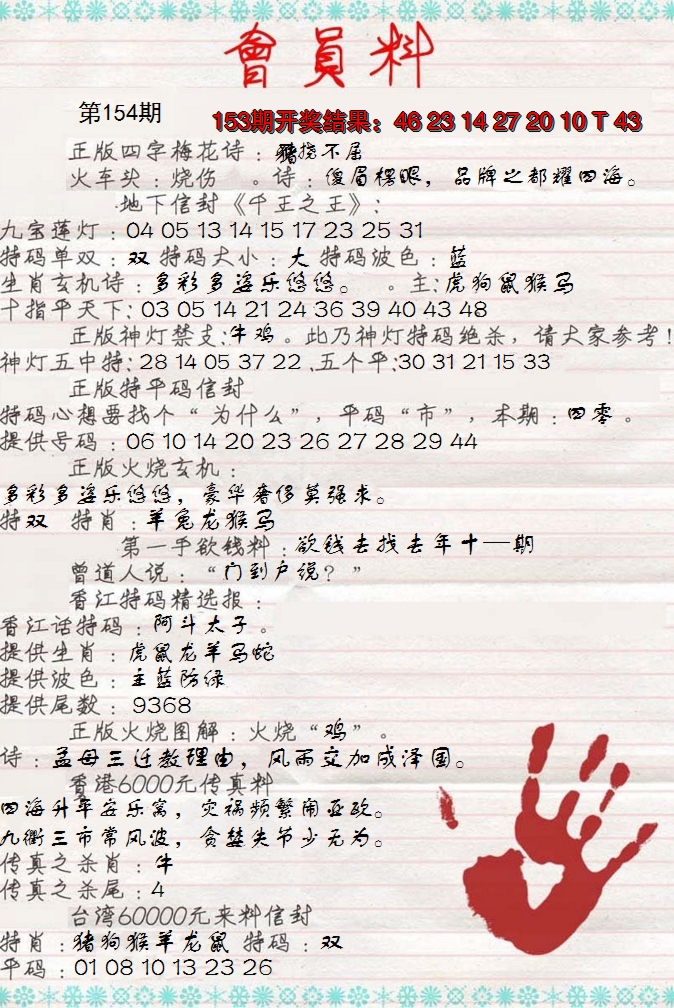 會員料
第154期
153期开奖结果：46 23 14 27 20 10 T 43
正版四字梅花诗：不屈
火车头：烧伤 。诗：傻眉楞眼，品牌之都耀四海。
地下信封《千王之王》：
九宝莲灯：04 05 13 14 15 17 23 25 31
特码单双：双 特码大小：大 特码波色：蓝
生肖玄机诗：多彩多姿乐悠悠。 。主：虎狗鼠猴马
十指平天下：03 05 14 21 24 36 39 40 43 48
正版神灯禁支：牛鸡。此乃神灯特码绝杀，请大家参考！
神灯五中特：28 14 05 37 22 .五个平：30 31 21 15 33
正版特平码信封
特码心想要找个“为什么”，平码“市”，本期：四零。
提供号码：06 10 14 20 23 26 27 28 29 44
正版火烧玄机：
多彩多姿乐悠悠，豪华奢侈莫强求。
特双 特肖：羊兔龙猴马
第一手欲钱料：欲钱去找去年十一期
曾道人说：“门到户说？”
香江特码精选报：
香江话特码：阿斗太子。
提供生肖：虎鼠龙羊马蛇
提供波色：主蓝防绿
提供尾数：9368
正版火烧图解：火烧“鸡”。
诗：孟母三迁教理由，风雨交加成泽国。
香港6000元传真料
四海升平安乐窝，灾祸频繁闹亚欧。
九衢三市常风波，贪婪失节少无为。
传真之杀肖：牛
传真之杀尾：4
台湾60000元来料信封
特肖：猪狗猴羊龙鼠 特码：双
平码：01 08 10 13 23 26